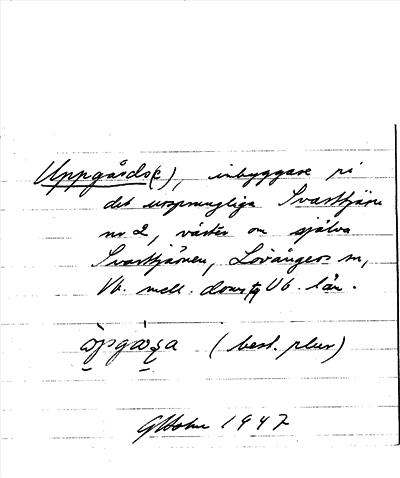 Uppgårds(e), inbyggare på
det ursprungliga Svarttjärn
nr 2, väster om själva
Svarttjärnen, Lövångers sn,
Vb. mell. doms, Vb. län.
(best. plur)
GHolm 1947